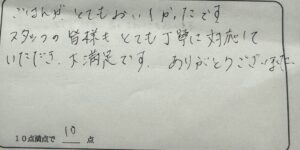 ごはんが とてもおいしかったです
スタッフの皆様も とても丁寧に対応して
いただき、大満足です。 ありがとうございました
10点満点で 10 点